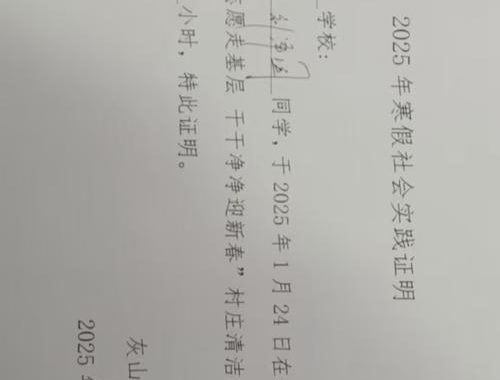 2025 年寒假社会实践证明
学校：
同学，于 2025 年 1 月 24 日在
愿走基层 干干净净迎新春”村庄清洁
小时，特此证明。
灰山
2025